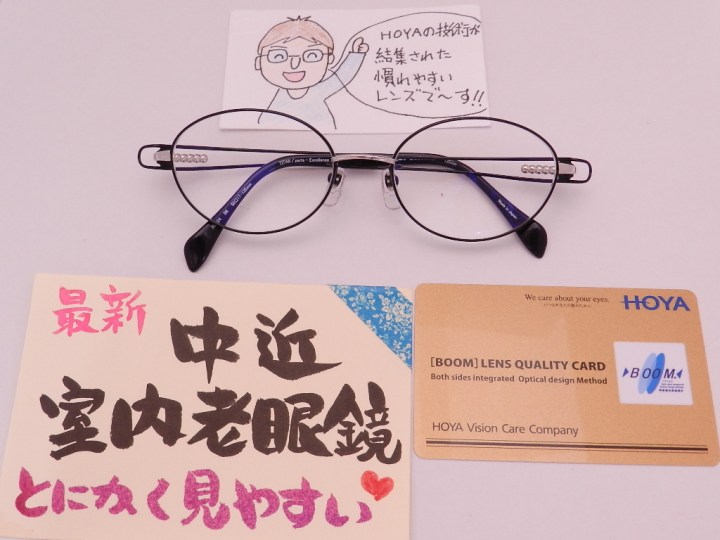 HOYAの技術が
結集された
慣れやすい
レンズで〜す!!
Made in Japan
最新
中近
室内老眼鏡
とにかく見やすい
We care about your eyes.
HOYA
[BOOM] LENS QUALITY CARD
Both sides integrated Optical design Method
BOOM
HOYA Vision Care Company